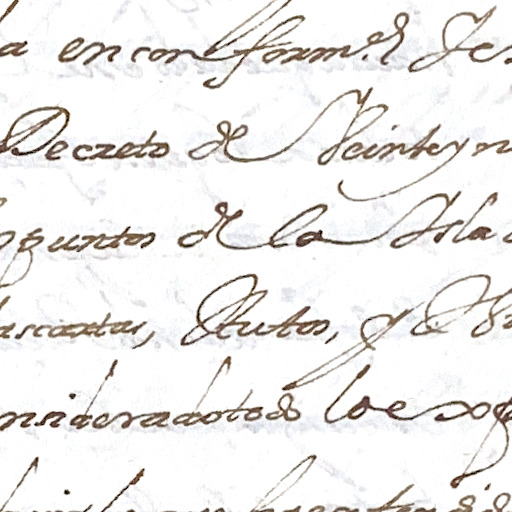 a en conform.d de
Decreto de Veinte y n
puntos de la Isla
las cartas, Autos, y
nsiderado todo lo exp